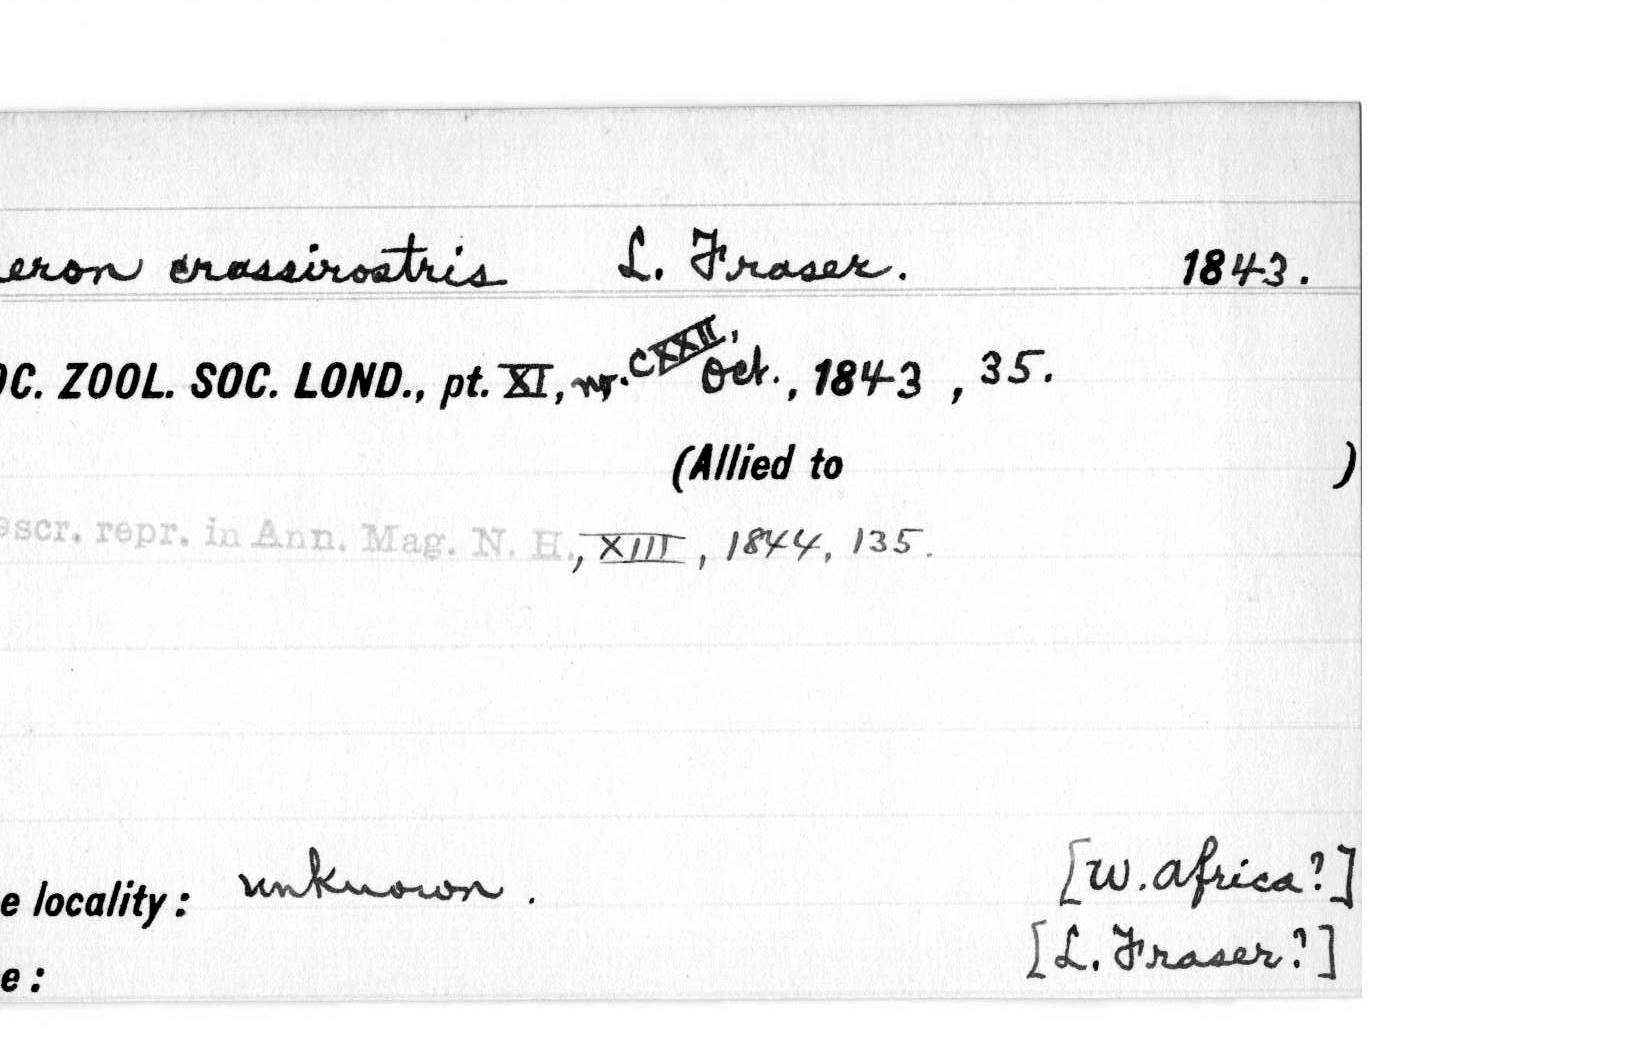 eron crassirostris L. Fraser. 1843.
OC. ZOOL. SOC. LOND., pt. XI, nr. CXXII, Oct., 1843, 35.
(Allied to )
escr. repr. in Ann. Mag. N. H., XIII, 1844, 135.
e locality: unknown. [W. Africa?]
[L. Fraser?]
e: